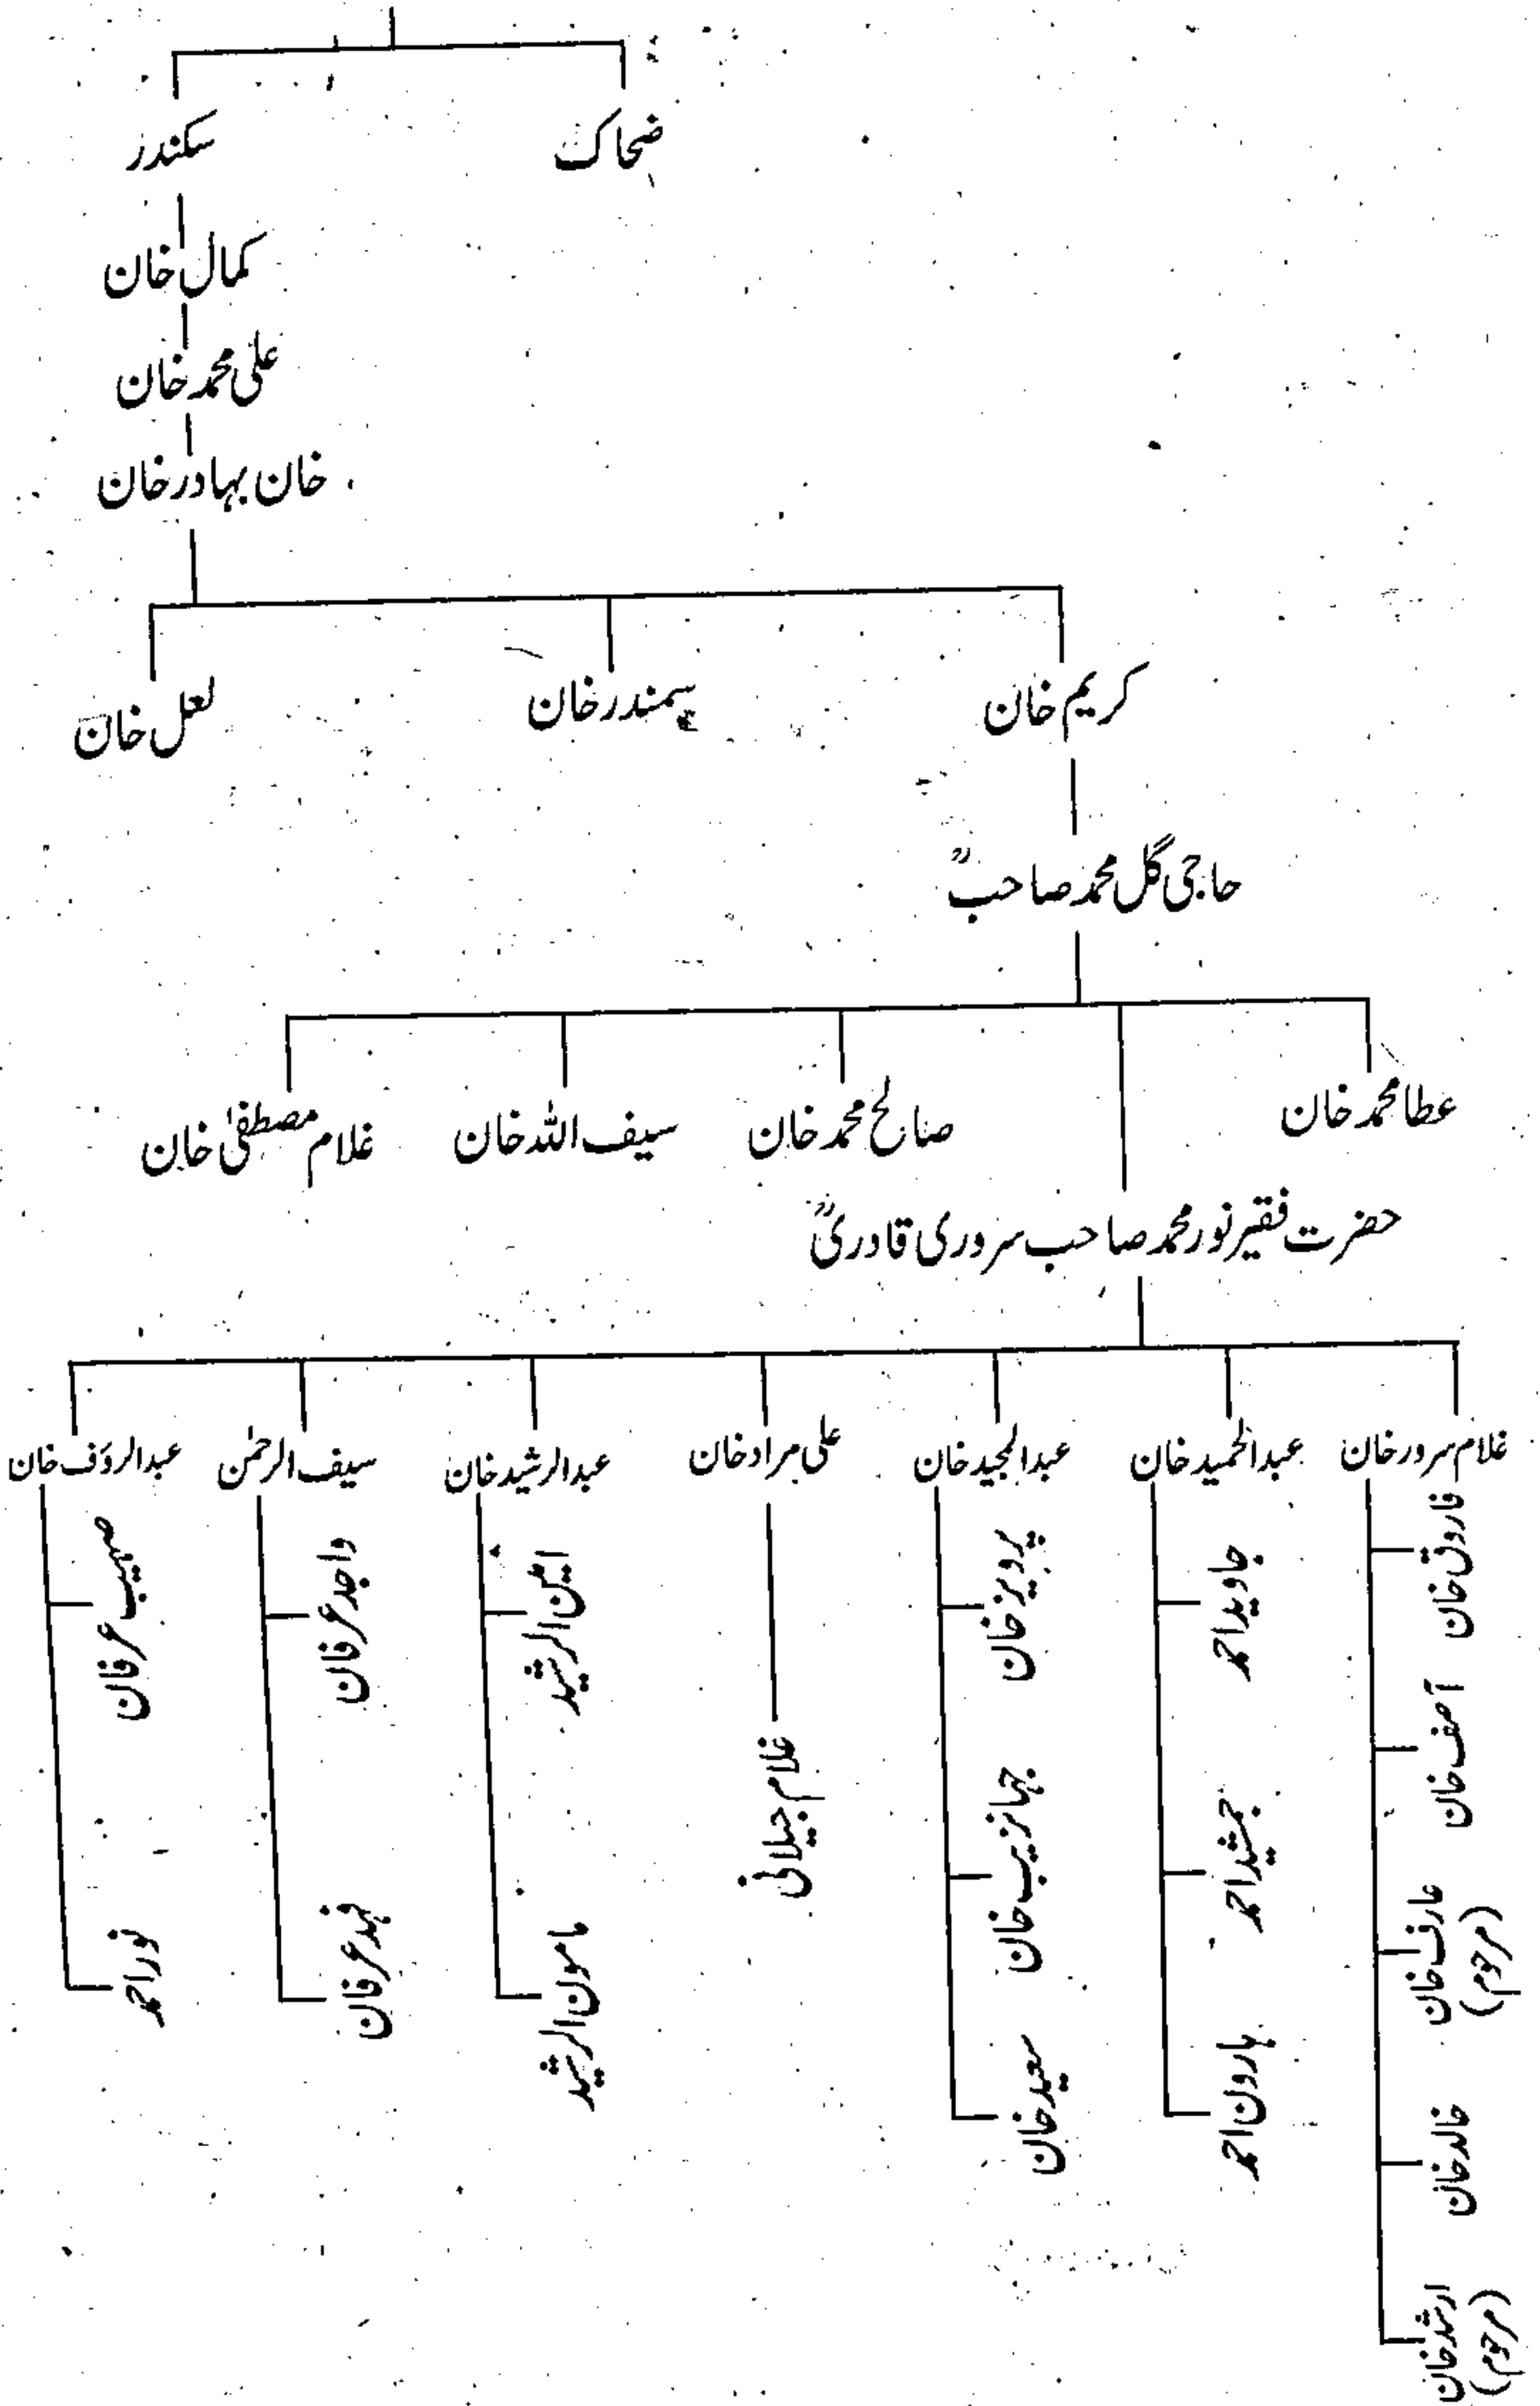 ضحاک
سکندر
کمال خان
علی محمد خان
خان بہادر خان
کریم خان
سمندر خان
لعل خان
حاجی گل محمد صاحبؒ
عطا محمد خان
صالح محمد خان
سیف اللہ خان
غلام مصطفیٰ خان
حضرت فقیر نور محمد صاحب سروری قادریؒ
غلام سرور خان
عبدالحمید خان
عبدالمجید خان
علی مراد خان
عبدالرشید خان
سیف الرحمٰن
عبدالرؤف خان
فاروق خان
آصف خان
عارف خان
(مرحوم)
خالد خان
ارشد خان
(مرحوم)
جاوید احمد
جمشید احمد
ہارون احمد
پرویز خان
جہانزیب خان
سعید خان
غلام جیلانی
امین الرشید
مامون الرشید
واجد عرفان
فہد عرفان
صہیب عرفان
نور احمد